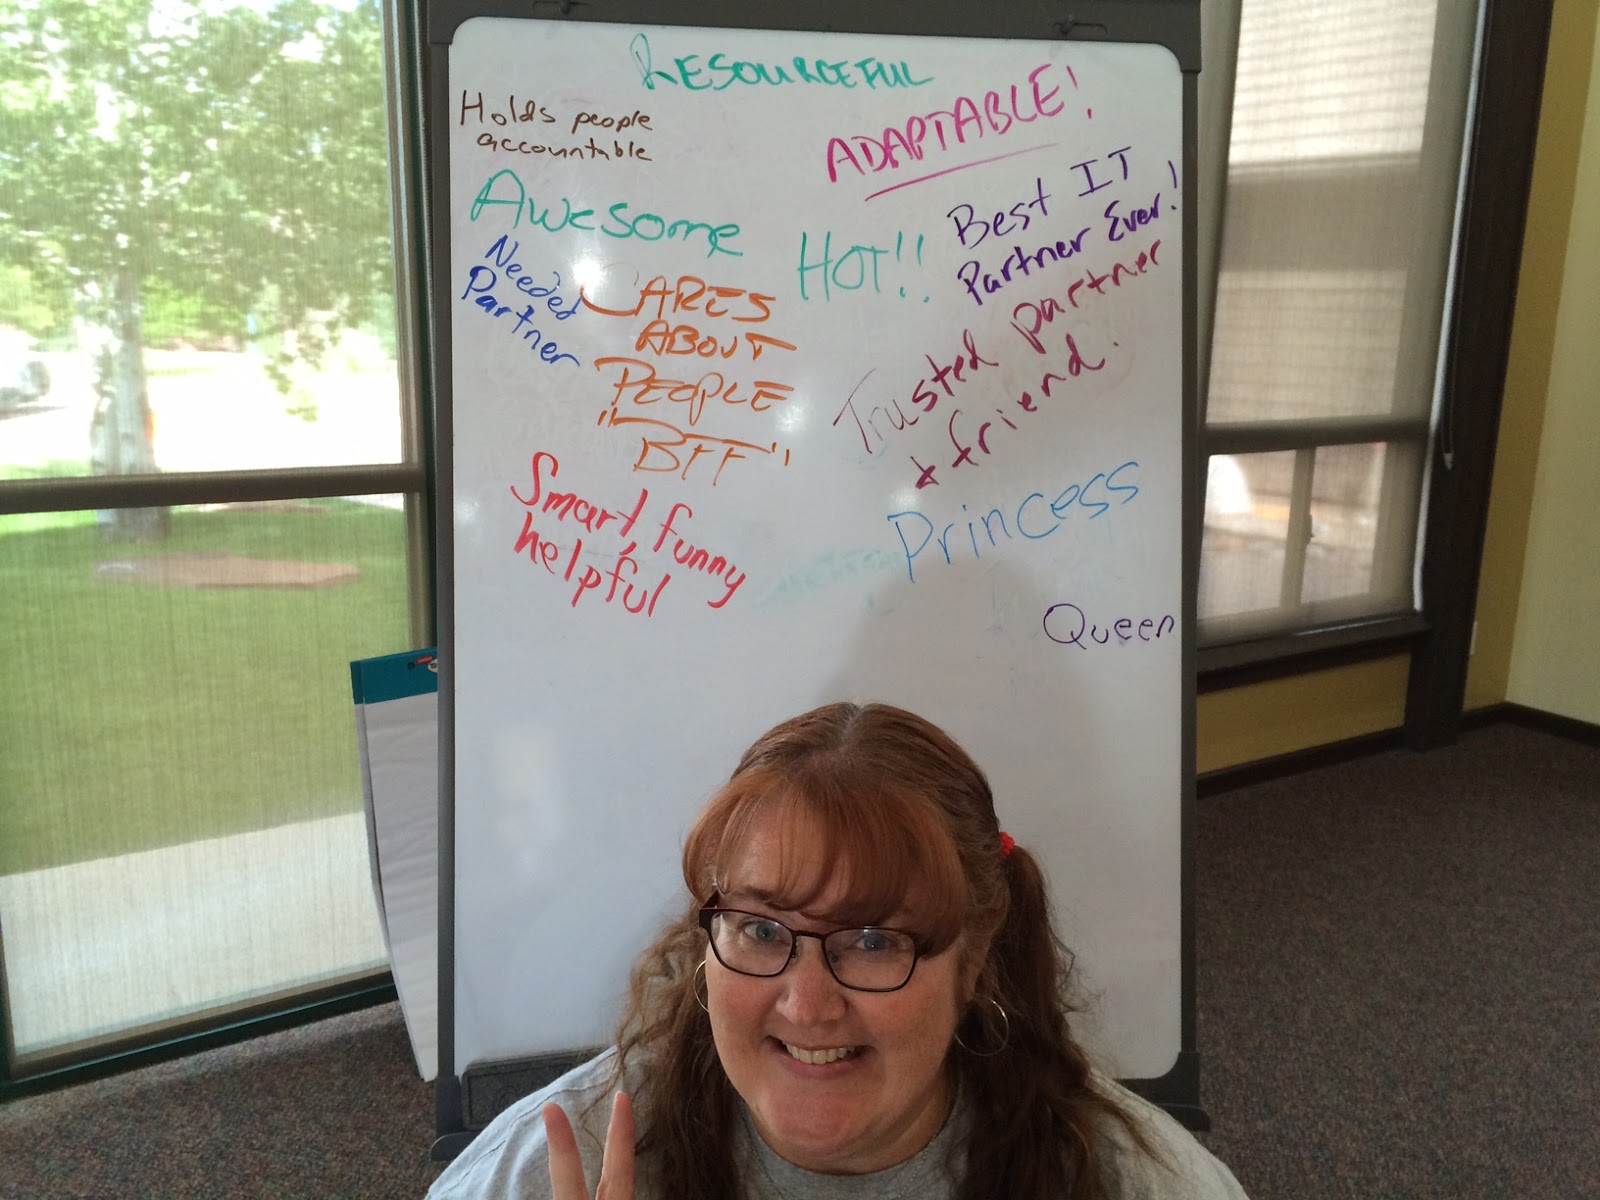 RESOURCEFUL
Holds people
accountable
ADAPTABLE!
Awesome
Best IT
Partner Ever!
HOT!!
Needed
Partner
CARES
ABOUT
PEOPLE
"BFF"
Trusted partner
& friend.
Smart, funny
helpful
Princess
Queen